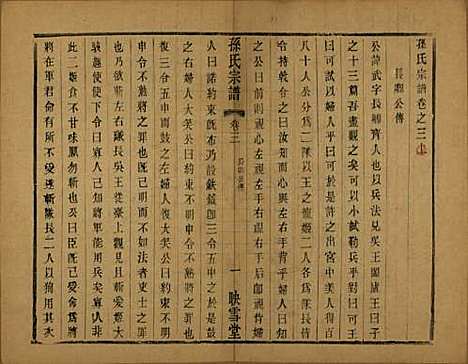 孫氏宗譜卷之三上
長卿公傳
公諱武字長卿齊人也以兵法見吳王闔廬王曰子
之十三篇吾盡觀之矣可以小試勒兵乎對曰可闔
廬曰可試以婦人乎曰可於是許之出宮中美人得百
八十人公分為二隊以王之寵姬二人各為隊長皆令
持戟令之曰汝知而心與左右手背乎婦人曰知
之公曰前則視心左視左手右視右手後即視背婦
孫氏宗譜
卷三
長卿公傳
一
映雪堂
人曰諾約束既布乃設鈇鉞即三令五申之於是鼓
之右婦人大笑公曰約束不明申令不熟將之罪也
復三令五申而鼓之左婦人復大笑公曰約束不明
申令不熟將之罪也既已明而不如法者吏士之
罪也乃欲斬左右隊長吳王從臺上觀見且斬愛姬大
駭趣使使下令曰寡人已知將軍能用兵矣寡人非
此二姬食不甘味願勿斬也公曰臣既已受命為將
將在軍君命有所不受遂斬隊長二人以徇用其次